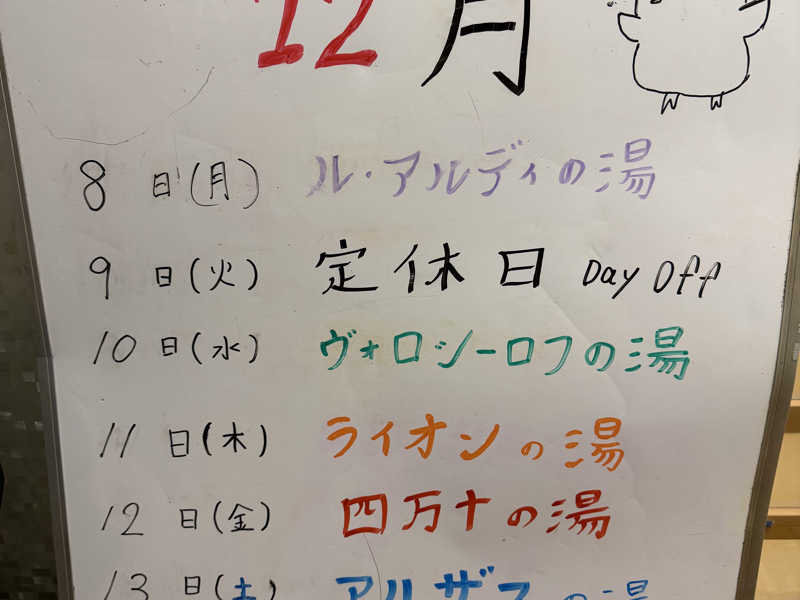 12月
8日(月) ル・アルディの湯
9日(火) 定休日 Day Off
10日(水) ヴォロシーロフの湯
11日(木) ライオンの湯
12日(金) 四万十の湯
13日(土) アルザスの湯